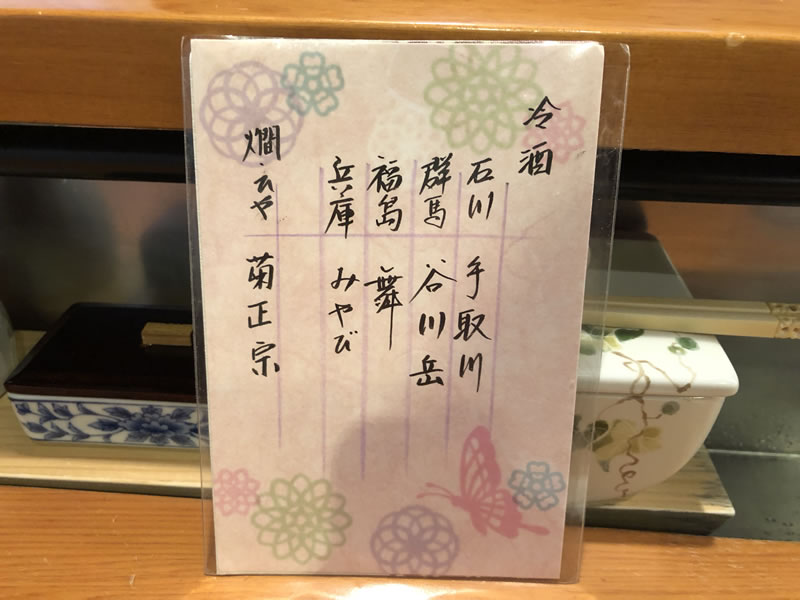 冷酒
石川 手取川
群馬 谷川岳
福島 舞
兵庫 みやび
燗 菊正宗